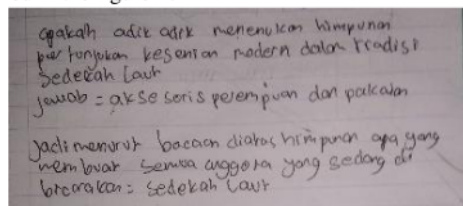 apakah adik adik menemukan himpunan
pertunjukan kesenian modern dalam tradisi
Sedekah Laut
jawab = akse soris perempuan dan pakaian
jadi menurut bacaan diatas himpunan apa yang
membuat semua anggota yang sedang di
bicarakan = sedekah laut